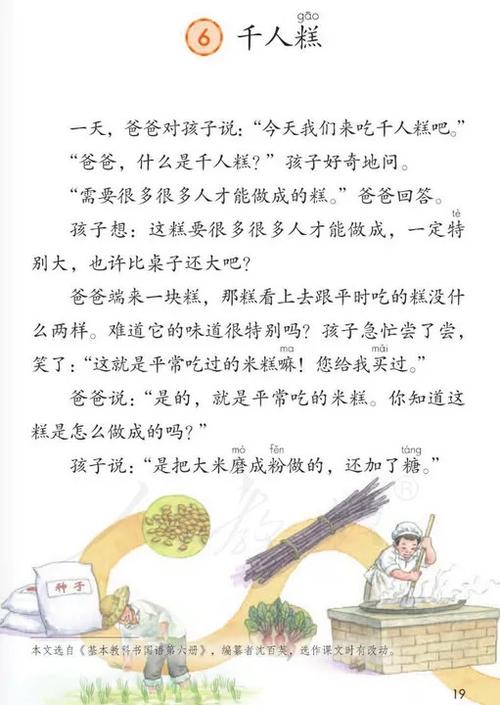 gāo
6 千人糕
一天，爸爸对孩子说：“今天我们来吃千人糕吧。”
“爸爸，什么是千人糕？”孩子好奇地问。
“需要很多很多人才能做成的糕。”爸爸回答。
tè
孩子想：这糕要很多很多人才能做成，一定特
别大，也许比桌子还大吧？
爸爸端来一块糕，那糕看上去跟平时吃的糕没什
么两样。难道它的味道很特别吗？孩子急忙尝了尝，
ma mǎi
笑了：“这就是平常吃过的米糕嘛！您给我买过。”
爸爸说：“是的，就是平常吃的米糕。你知道这
糕是怎么做成的吗？”
mó fěn táng
孩子说：“是把大米磨成粉做的，还加了糖。”
®
种子
本文选自《基本教科书国语第六册》，编纂者沈百英，选作课文时有改动。
19